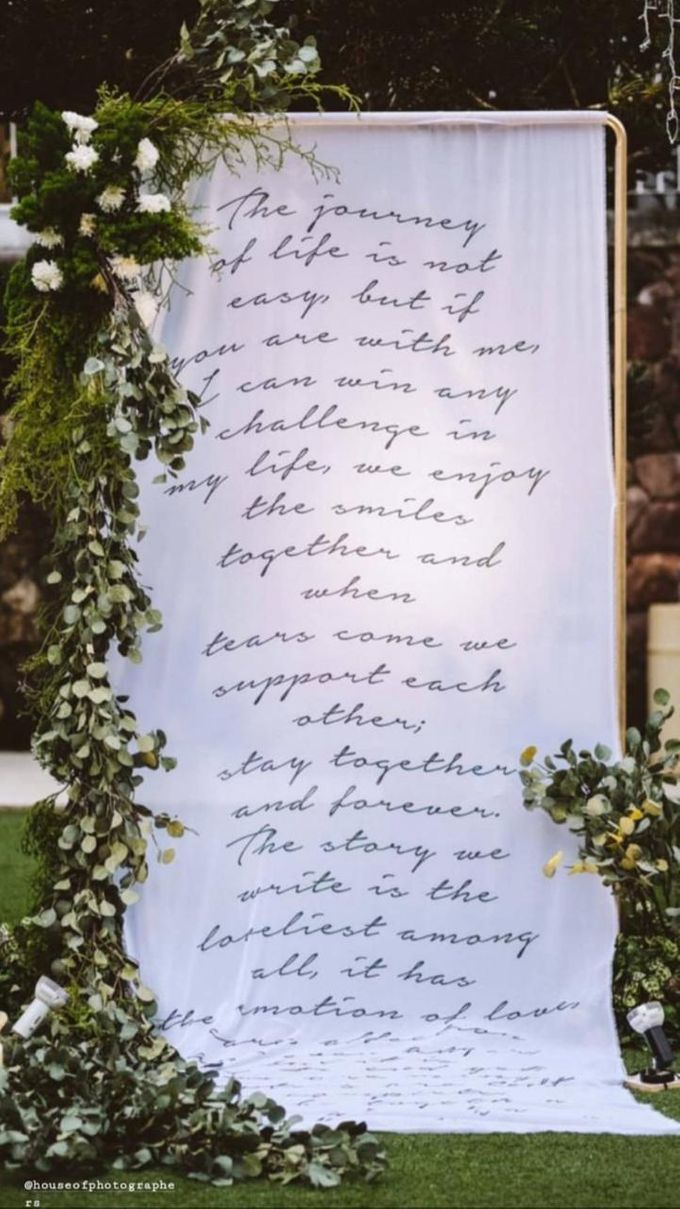 The journey
of life is not
easy, but if
you are with me,
I can win any
challenge in
my life, we enjoy
the smiles
together and
when
tears come we
support each
other;
stay together
and forever.
The story we
write is the
loveliest among
all, it has
the emotion of love,
@houseofphotographe
rs